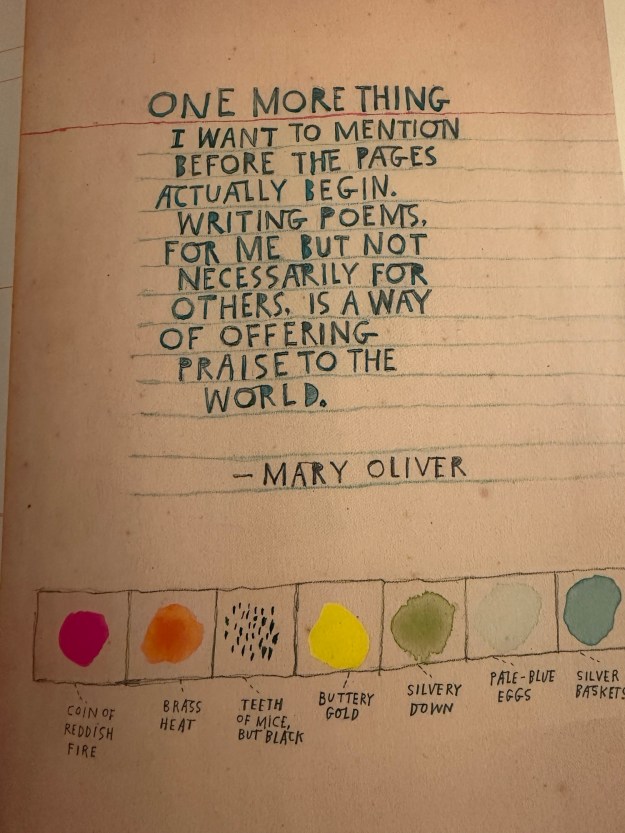 ONE MORE THING
I WANT TO MENTION
BEFORE THE PAGES
ACTUALLY BEGIN.
WRITING POEMS,
FOR ME BUT NOT
NECESSARILY FOR
OTHERS, IS A WAY
OF OFFERING
PRAISE TO THE
WORLD.
— MARY OLIVER
COIN OF
REDDISH
FIRE
BRASS
HEAT
TEETH
OF MICE,
BUT BLACK
BUTTERY
GOLD
SILVERY
DOWN
PALE-BLUE
EGGS
SILVER
BASKETS